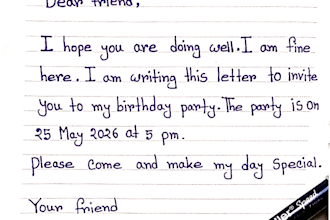 Dear friend,
I hope you are doing well. I am fine
here. I am writing this letter to invite
you to my birthday party. The party is on
25 May 2026 at 5 pm.
Please come and make my day special.
Your friend
Speed